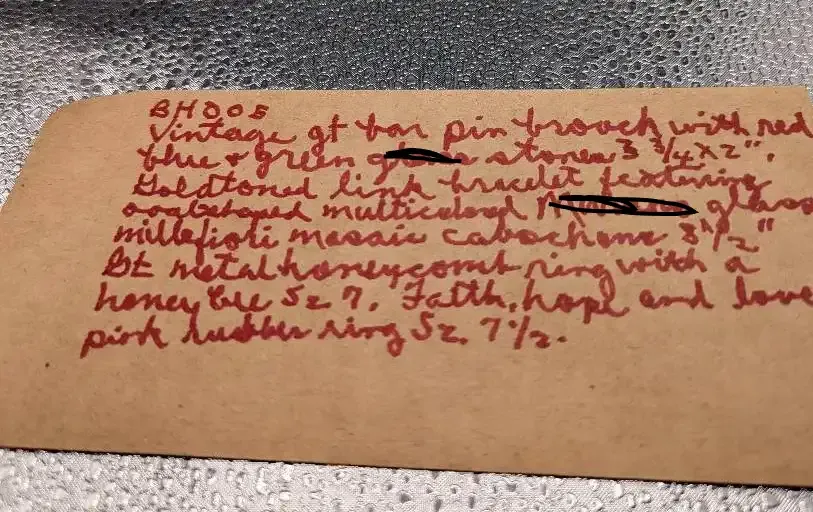 BHDOS
Vintage gt bar pin brooch with red
blue & green stones 3 3/4 x 2".
Goldtoned link bracelet featuring
multicolored glass
millefiori mosaic cabochons 3 1/2"
Gt metal honeycomb ring with a
honey bee Sz 7. Faith, hope and love
pink rubber ring Sz. 7 1/2.